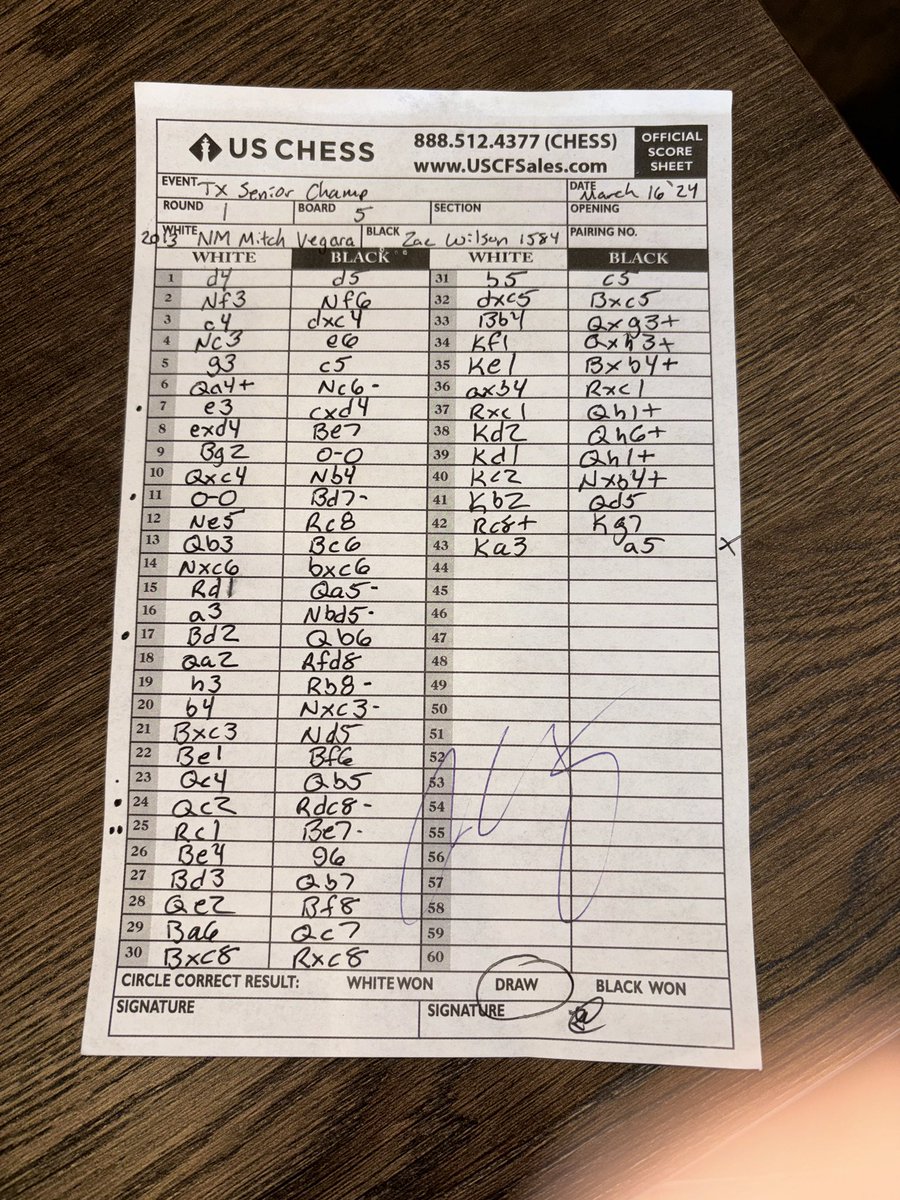 US CHESS 888.512.4377 (CHESS) OFFICIAL
www.USCFSales.com SCORE
SHEET
EVENT TX Senior Champ DATE March 16 '24
ROUND 1 BOARD 5 SECTION OPENING
2013 WHITE NM Mitch Vegara BLACK Zac Wilson 1584 PAIRING NO.
WHITE BLACK WHITE BLACK
1 d4 d5 31 b5 c5
2 Nf3 Nf6 32 dxc5 Bxc5
3 c4 dxc4 33 Bb4 Qxg3+
4 Nc3 e6 34 Kf1 Qxh3+
5 g3 c5 35 Ke1 Bxb4+
6 Qa4+ Nc6- 36 axb4 Rxc1
7 e3 cxd4 37 Rxc1 Qh1+
8 exd4 Be7 38 Kd2 Qh6+
9 Bg2 0-0 39 Kd1 Qh1+
10 Qxc4 Nb4 40 Kc2 Nxb4+
11 0-0 Bd7- 41 Kb2 Qd5
12 Ne5 Rc8 42 Rc8+ Kg7
13 Qb3 Bc6 43 Ka3 a5 X
14 Nxc6 bxc6 44
15 Rd1 Qa5- 45
16 a3 Nbd5- 46
17 Bd2 Qb6 47
18 Qa2 Rfd8 48
19 h3 Rb8- 49
20 b4 Nxc3- 50
21 Bxc3 Nd5 51
22 Be1 Bf6 52
23 Qc4 Qb5 53
24 Qc2 Rdc8- 54
25 Rc1 Be7- 55
26 Be4 g6 56
27 Bd3 Qb7 57
28 Qe2 Bf8 58
29 Ba6 Qc7 59
30 Bxc8 Rxc8 60
CIRCLE CORRECT RESULT: WHITE WON DRAW BLACK WON
SIGNATURE SIGNATURE